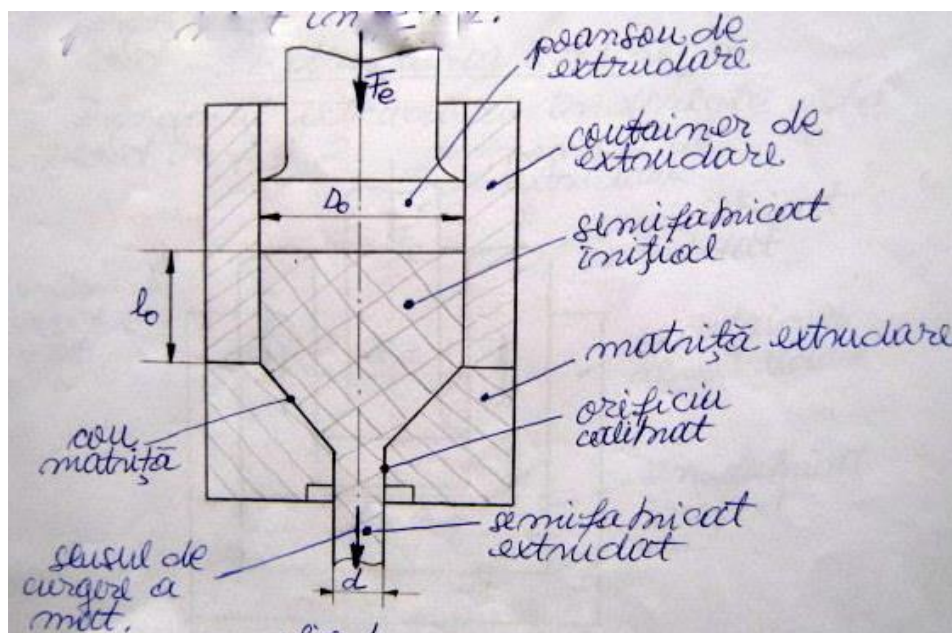 Fe
poanson de
extrudare
container de
extrudare
D₀
semifabricat
inițial
l₀
matriță extrudare
con
matriță
orificiu
calibrat
semifabricat
extrudat
sensul de
curgere a
mat.
d